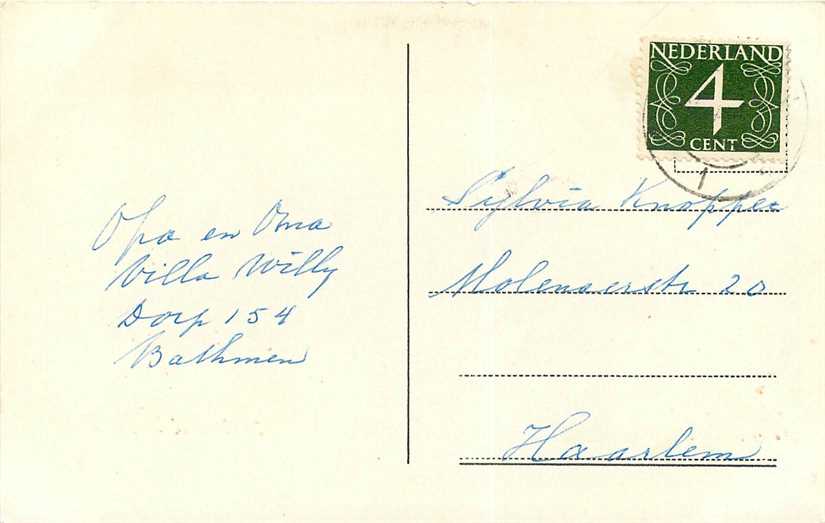 Opa en Oma
Villa Willy
Dorp 154
Bathmen
NEDERLAND
4
CENT
Sylvia Knopper
Molenaerstr 20
Haarlem